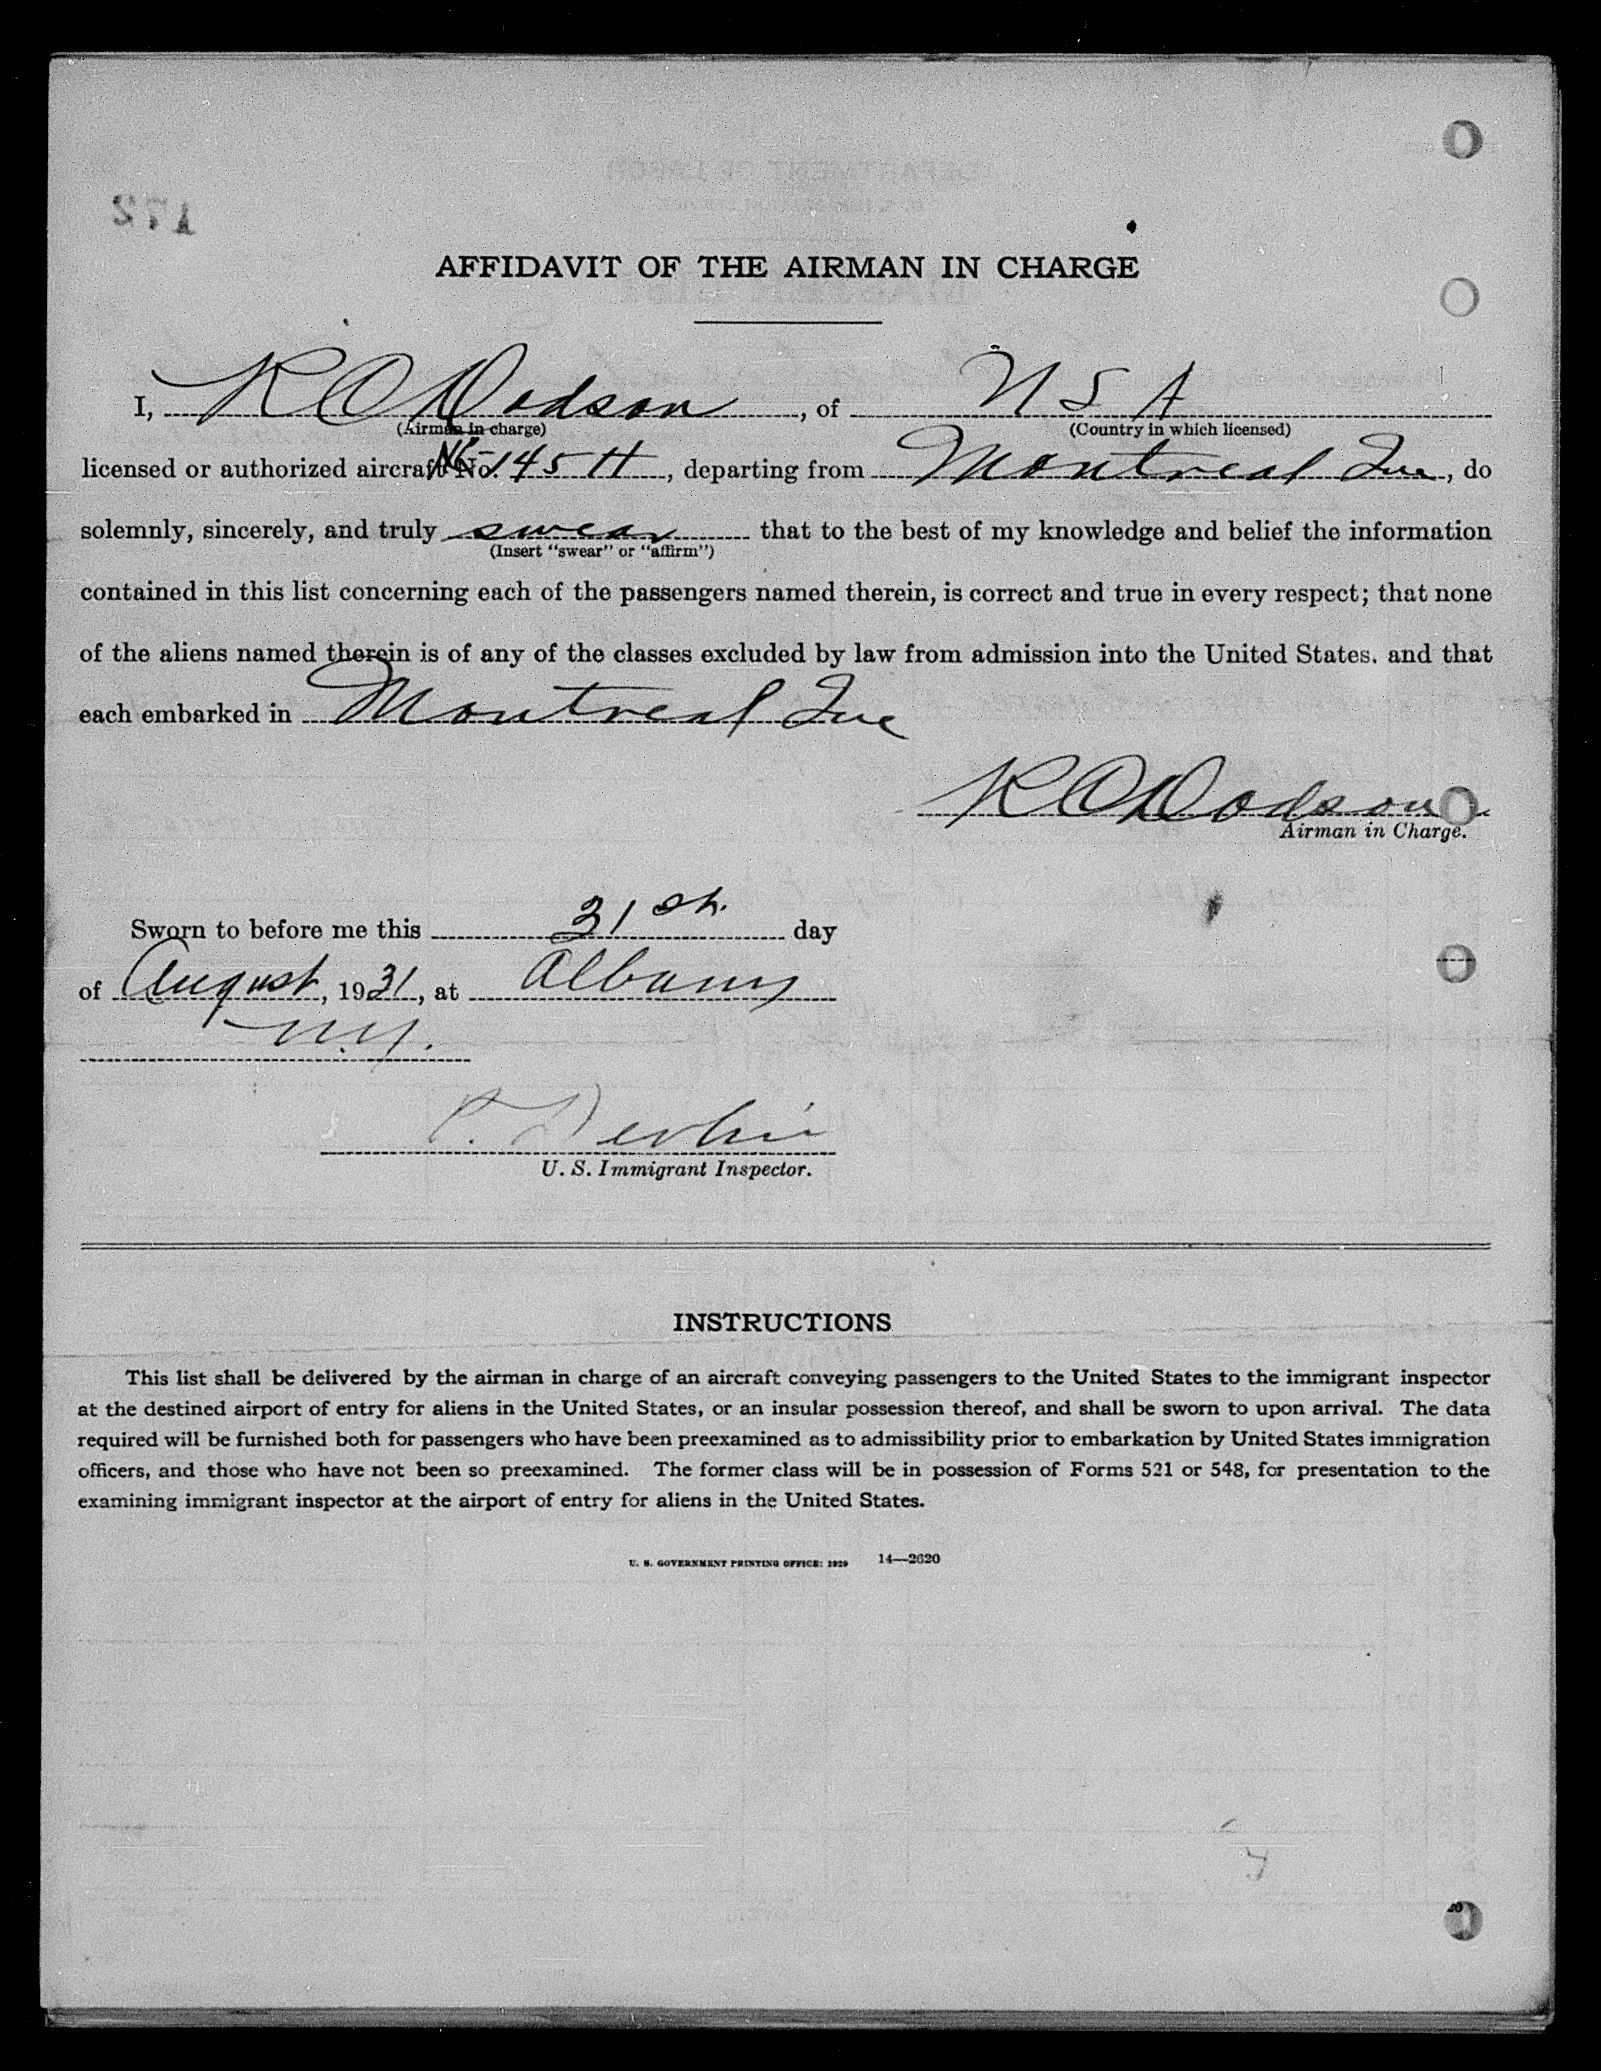 172
AFFIDAVIT OF THE AIRMAN IN CHARGE
I, R O Dodson, of U S A
(Airman in charge) (Country in which licensed)
licensed or authorized aircraft No. NC-145 H, departing from Montreal Que, do
solemnly, sincerely, and truly swear that to the best of my knowledge and belief the information
(Insert "swear" or "affirm")
contained in this list concerning each of the passengers named therein, is correct and true in every respect; that none
of the aliens named therein is of any of the classes excluded by law from admission into the United States. and that
each embarked in Montreal Que
R O Dodson
Airman in Charge.
Sworn to before me this 31st. day
of August, 1931, at Albany
N.Y.
P. Devlin
U. S. Immigrant Inspector.
INSTRUCTIONS
This list shall be delivered by the airman in charge of an aircraft conveying passengers to the United States to the immigrant inspector
at the destined airport of entry for aliens in the United States, or an insular possession thereof, and shall be sworn to upon arrival. The data
required will be furnished both for passengers who have been preexamined as to admissibility prior to embarkation by United States immigration
officers, and those who have not been so preexamined. The former class will be in possession of Forms 521 or 548, for presentation to the
examining immigrant inspector at the airport of entry for aliens in the United States.
U. S. GOVERNMENT PRINTING OFFICE: 1929 14—2620